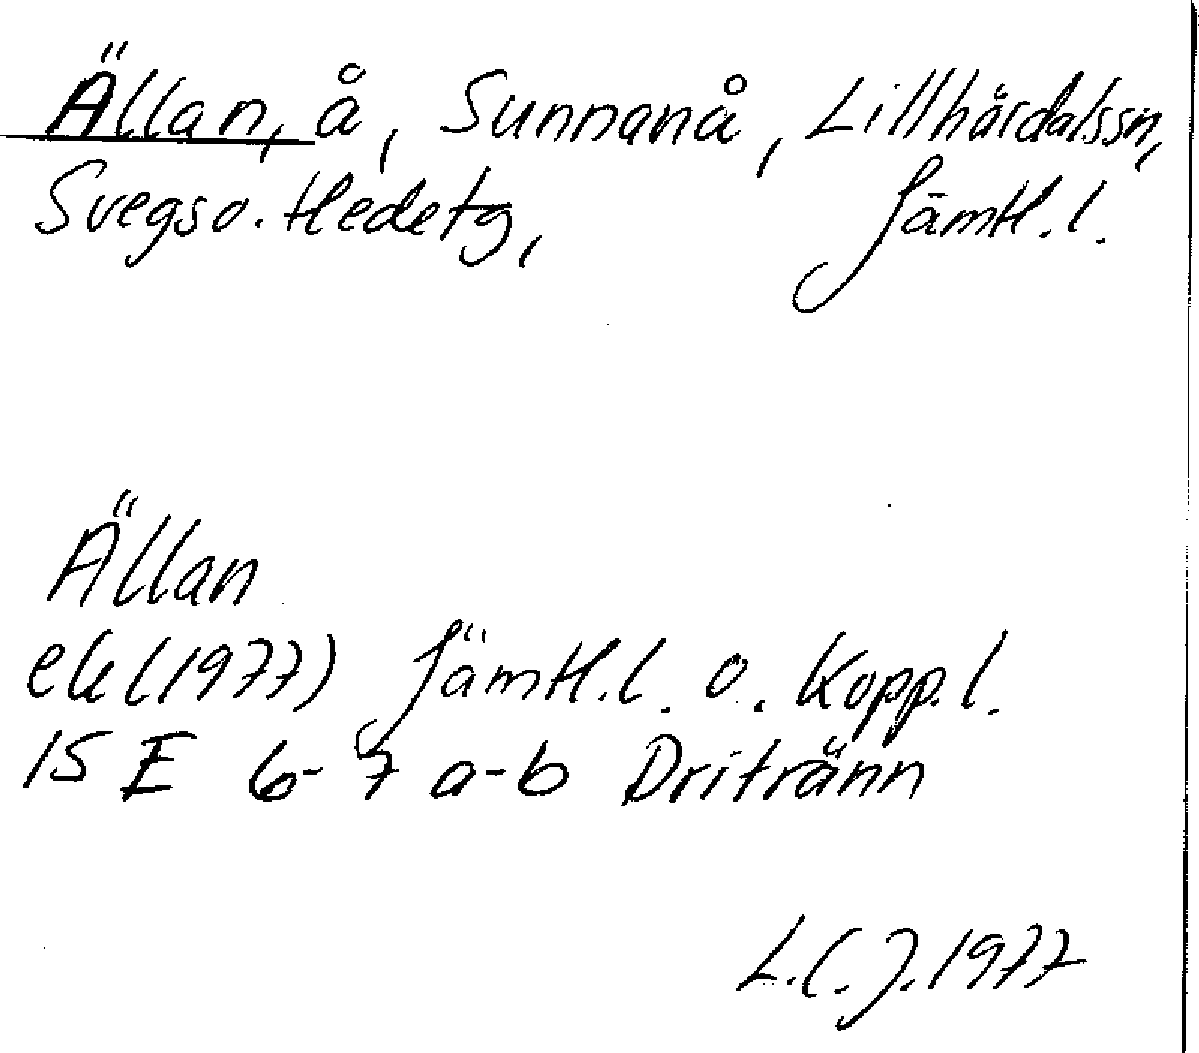 Ällan, å, Sunnanå, Lillhärdalssn,
Svegs o. Hedetg, Jämtl. l.
Ällan
ek (1977) Jämtl. l. o. Kopp. l.
15 E 6-7 a-b Dritränn
L.C.J. 1977